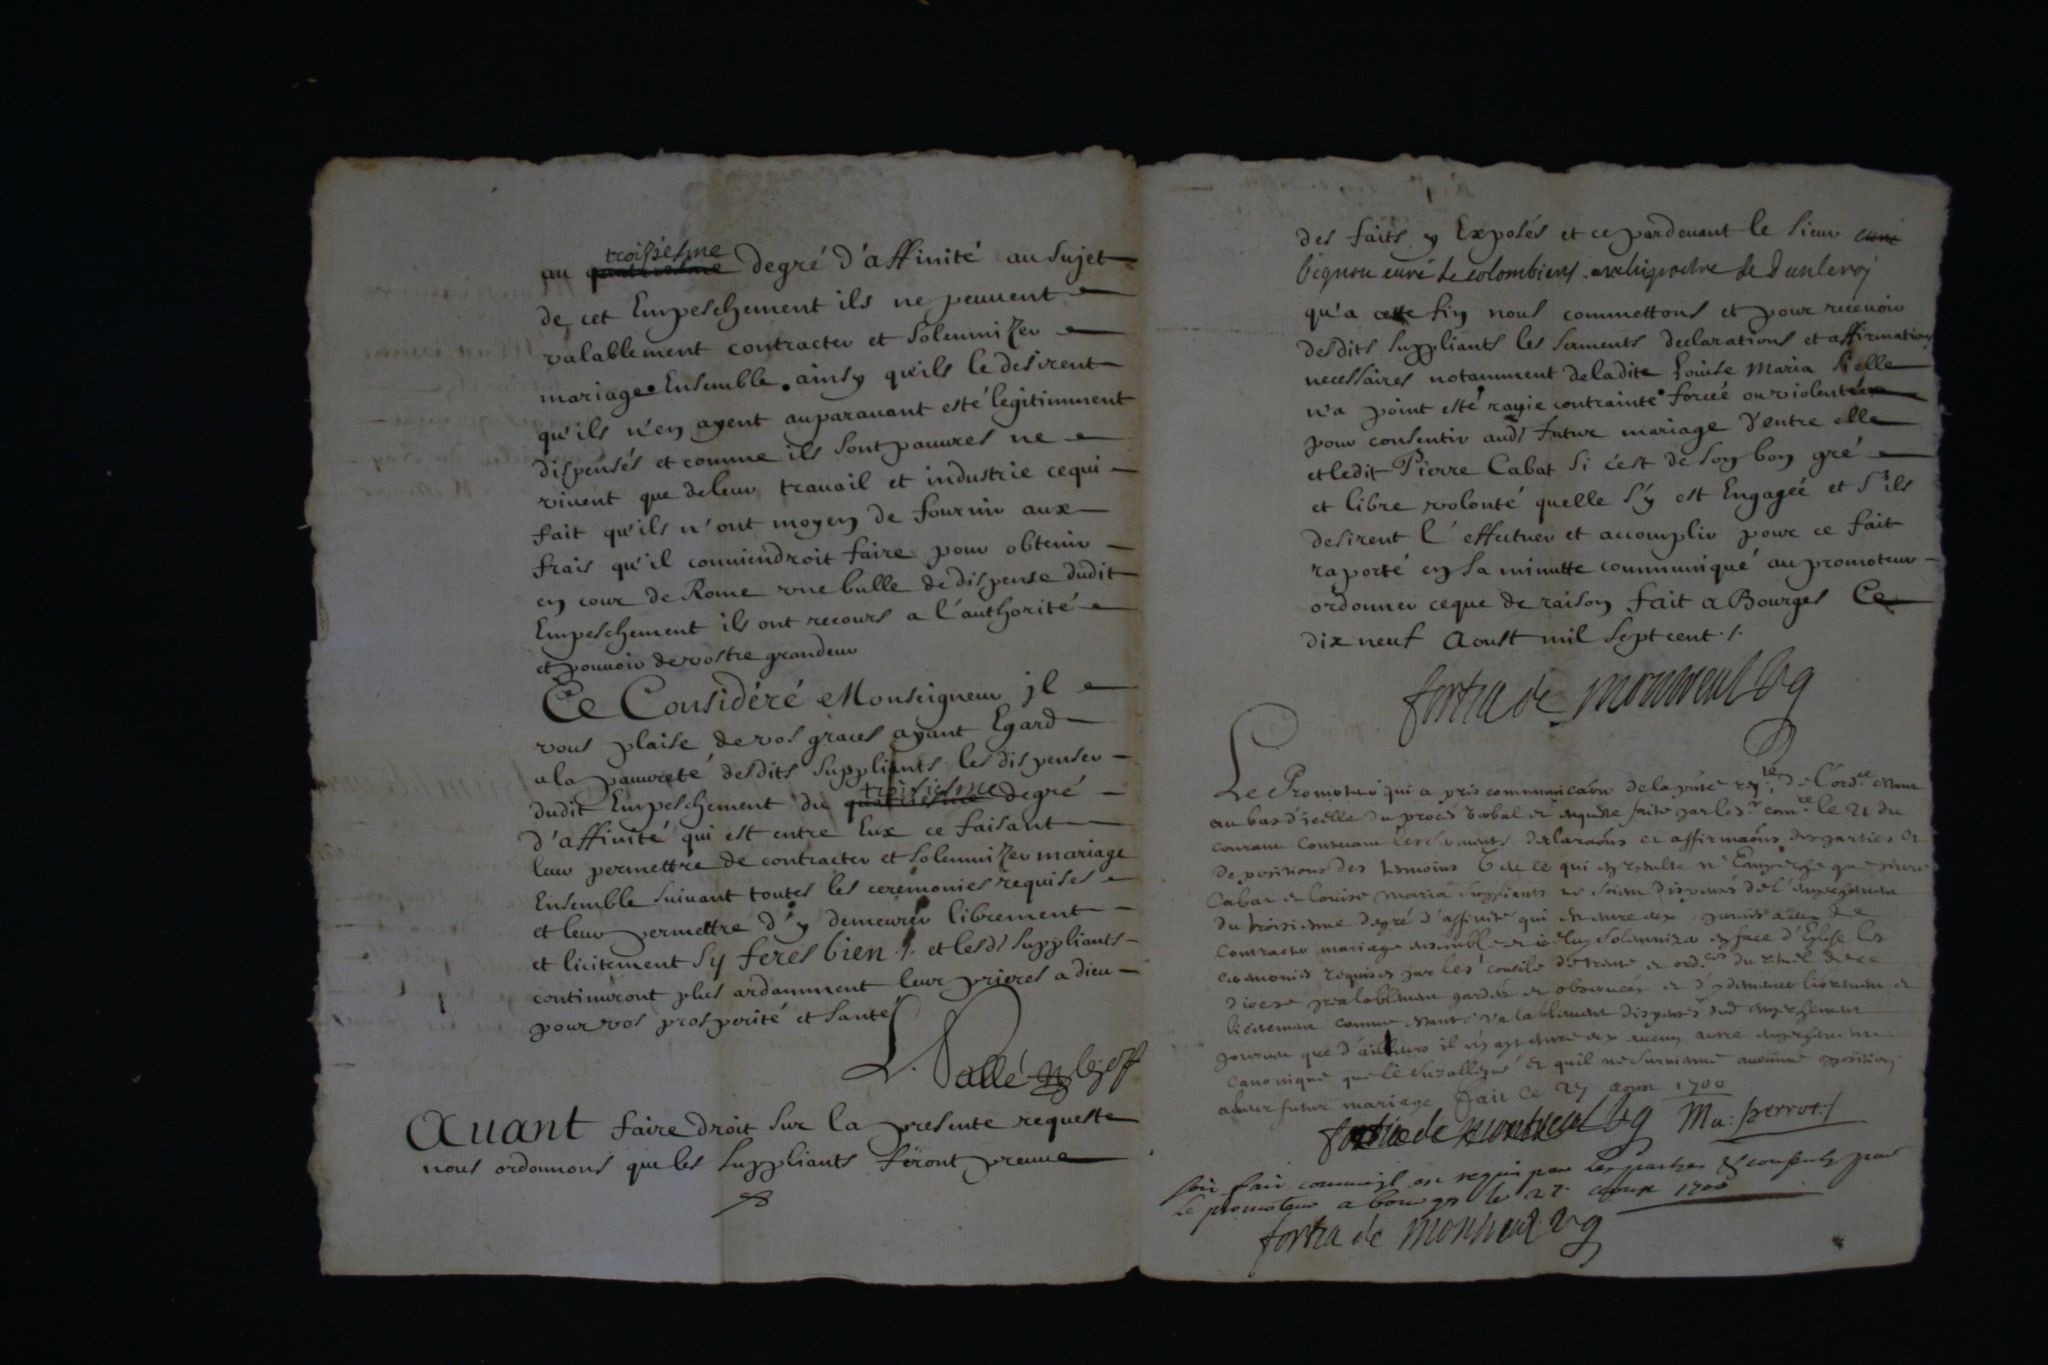 au quatriesme troisiesme degré d'affinité au sujet
de cet Empeschement ils ne peuuent
valablement contracter et solemnizer
mariage Ensemble ainsy qu'ils le desirent
qu'ils n'en ayent auparauant esté legitimment
dispensés et comme ils sont pauures ne
viuent que de leur trauail et industrie ce qui
fait qu'ils n'ont moyen de fournir aux
frais qu'il conuiendroit faire pour obtenir
en cour de Rome vne bulle de dispense dudit
Empeschement ils ont recours a l'authorité
et pouuoir de vostre grandeur
Ce Considéré Monseigneur jl
vous plaise de vos graces ayant Egard
a la pauureté desdits suppliants les dispenser
dudit Empeschement du quatriesme troisiesme degré
d'affinité qui est entre Eux ce faisant
leur permettre de contracter et solemnizer mariage
Ensemble suivant toutes les ceremonies requises
et leur permettre d'y demeurer librement
et licitement sy feres bien ./. et lesds suppliants
continuront plus ardamment leur prieres a dieu
pour vos prosperité et santé
Auant faire droit sur la presente requeste
nous ordonnons que les suppliants feront preuue
des faits y Exposés et ce pardeuant le sieur curé
bignon curé de colombiers archiprestre de dunleroy
qu'a cette fin nous commettons et pour receuoir
desdits suppliants les serments declarations et affirmations
necessaires notamment de ladite Louise Maria si elle
n'a point esté rauie contrainte forcée ou violentée
pour consentir audt futur mariage d'entre elle
et ledit Pierre Cabat si c'est de son bon gré
et libre volonté quelle s'y est Engagée et s'ils
desirent l'effectuer et accomplir pour ce fait
raporté en sa minutte communiqué au promoteur
ordonner ce que de raison fait a Bourges Ce
dix neuf Aoust mil sept cent ./.
fortia de montreal vg
Le Promoteur qui a pris communicaon de la pnte reqte de l'ordce estant
au bas d'icelle du procés verbal et enqueste faite par led sr comre le 21 du
courant contenant les serments declaraons et affirmaons des parties et
depositions des temoins de ce qui en resulte n'Empesche que pierre
Cabat et louise maria suppliants ne soient dispensés de l'empeschement
du troisieme degré d'affinité qui est entre eux permis a eux de
contracter mariage ensemble et iceluy solemnizer en face d'Eglise les
ceremonies requises par les conciles de trente et ordces du rituel de ce
diocese prealablement gardées et obseruées et d'y demeurer librement et
licitement comme estants valablement dispensés dud empeschement
pourueu que d'ailleurs il n'y ayt entre eux aucun autre empeschement
canonique que le susallegué et quil ne suruienne aucunne opposition
a leur futur mariage fait ce 27 aoust 1700
fortia de montreal vg Ma: perrot ./.
soit fait comme il est requis par les parties et consenty par
le promoteur a bourges le 27 aoust 1700
fortia de montreal vg